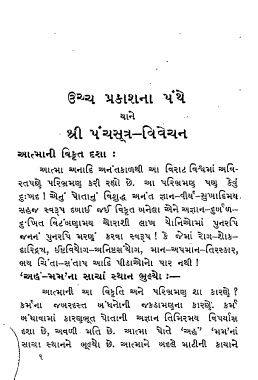 ઉચ્ચ પ્રકાશના પંથે
યાને
શ્રી પંચસૂત્ર–વિવેચન
આત્માની વિકૃત દશા :
આત્મા અનાદિ અનંતકાળથી આ વિરાટ વિશ્વમાં અવિ-
રતપણે પરિભ્રમણ કરી રહ્યો છે. આ પરિભ્રમણ પણ કેવું
દુઃખદ ! એનું પોતાનું વિશુદ્ધ અનંત જ્ઞાન–વીર્ય–સુખાદિમય
સહજ સ્વરૂપ દબાઈ જઈ વિકૃત બનેલા એને અજ્ઞાન–દુર્બળ–
દુઃખિત વિટંબણામય ચોરાશી લાખ યોનિઓમાં પુનરપિ
જનનં પુનરપિ મરણં કરવા સ્વરૂપ ! કે જેમાં રોગ–શોક–
દારિદ્રય, ઇષ્ટવિયોગ–અનિષ્ટસંયોગ, માન–અપમાન–તિરસ્કાર,
ભય ચિંતા–સંતાપ આદિ પીડાઓનો પાર નથી !
‘અહં–મમ’ના સાચાં સ્થાન ભૂલ્યો :—
આત્માની આ વિકૃતિ અને પરિભ્રમણ શા કારણે ?
કર્મના જબરદસ્ત બંધનોની જકડામણના કારણે. કર્મ
બંધાવામાં કારણભૂત પોતાની અજ્ઞાન તિમિરમય વિપર્યાસ
દશા છે, અવળી મતિ છે. આત્મા પોતે ‘અહં’ ‘મમ’નાં
સાચા સ્થાનને ભૂલ્યો છે. આત્માને બદલે માટીની કાયાને
૧